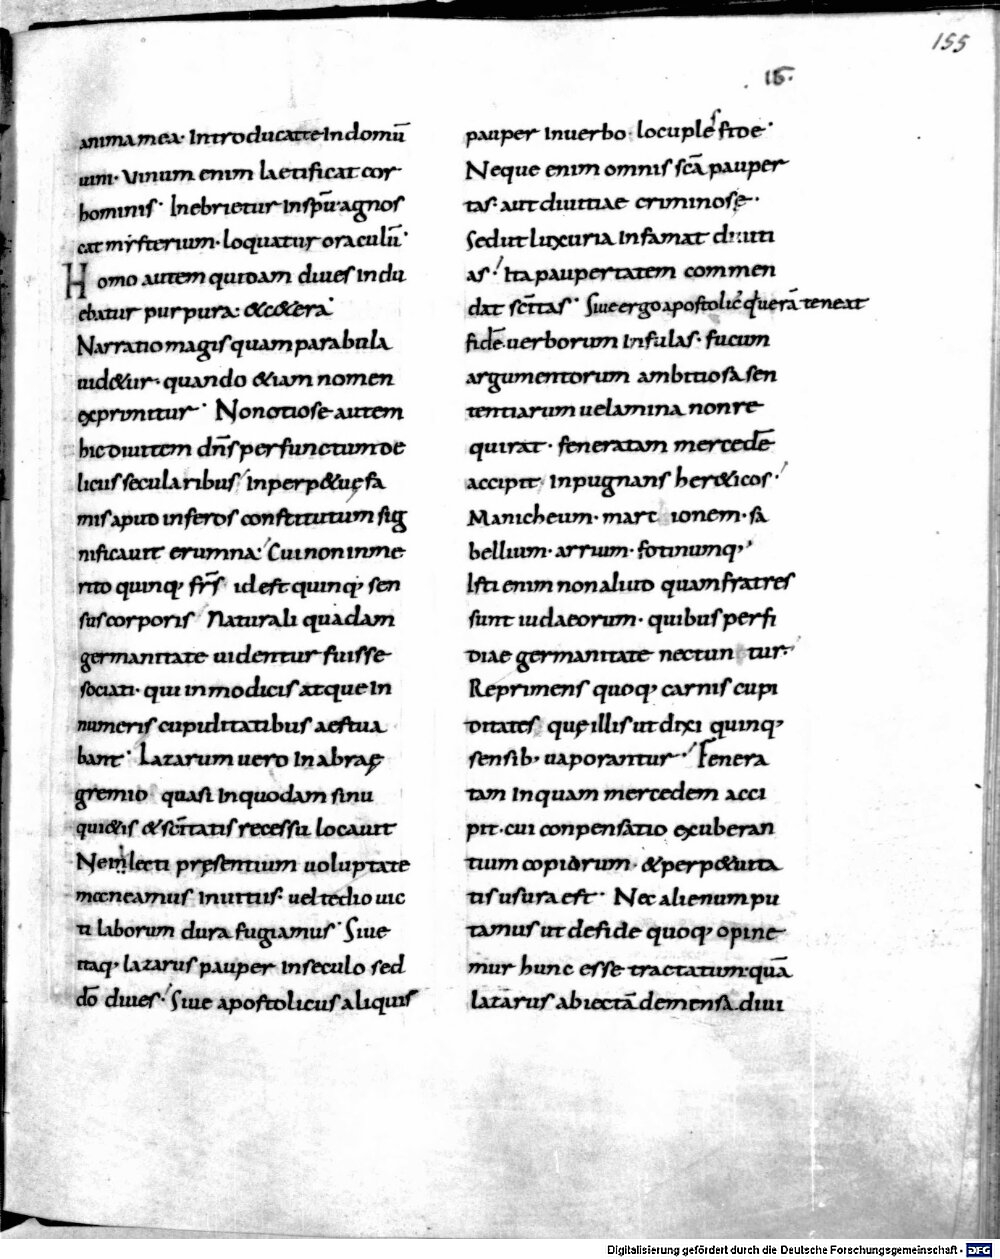 155
15.
anima mea· Introducatte Indomū
uini· Vinum enim laetificat cor
hominis· Inebrietur inspū· agnos
cat mysterium· loquatur oraculū·
Homo autem quidam diues indu
ebatur purpura: & c&era·
Narratio magis quam parabula
uid&ur· quando &iam nomen
exprimitur· Non otiose autem
hic diuitem dn̄s perfunctum de
liciis secularibus / Inperp&uę fa
mis apud inferos constitutum sig
nificauit erumna: Cui non inme
rito quinq; fr̄s id est quinq; sen
sus corporis / Naturali quadam
germanitate uidentur fuisse
sociati· qui inmodicis atque In
numeris cupiditatibus aestua
bant· Lazarum uero In abraę
gremio quasi Inquodam sinu
qui&is & sc̄itatis recessu locauit
Ne inlecti pręsentium uoluptate
moeneamus Inuitus· uel tedio uic
ti laborum dura fugiamus· Siue
itaq; lazarus pauper Inseculo sed
dō diues· Siue apostolicus aliquis
pauper Inuerbo· locuples fide·
Neque enim omnis scā pauper
tas· aut diuitiae criminose·
Sed ut luxuria Infamat diuiti
as· Ita paupertatem commen
dat sc̄itas· Siue ergo apostolic; q uerā teneat
fidē· uerborum Insulas· fucum
argumentorum ambitiosa sen
tentiarum uelamina non re
quirat· feneratam mercedē
accipit Inpugnans her&icos·
Manicheum· marc ionem· sa
bellium· arrium· fotinumq;
Isti enim non aliud quam fratres
sunt iudaeorum· quibus perfi
diae germanitate nectun tur·
Reprimens quoq; carnis cupi
ditates quę illis ut dixi quinq;
sensib; uaporantur· Fenera
tam Inquam mercedem acci
pit· cui conpensatio exuberan
tium copiarum· & perp&uita
tis usura est· Nec alienum pu
tamus ut de fide quoq; opine
mur hunc esse tractatum· quā
lazarus abiectā de mensa diui
Digitalisierung gefördert durch die Deutsche Forschungsgemeinschaft - DFG